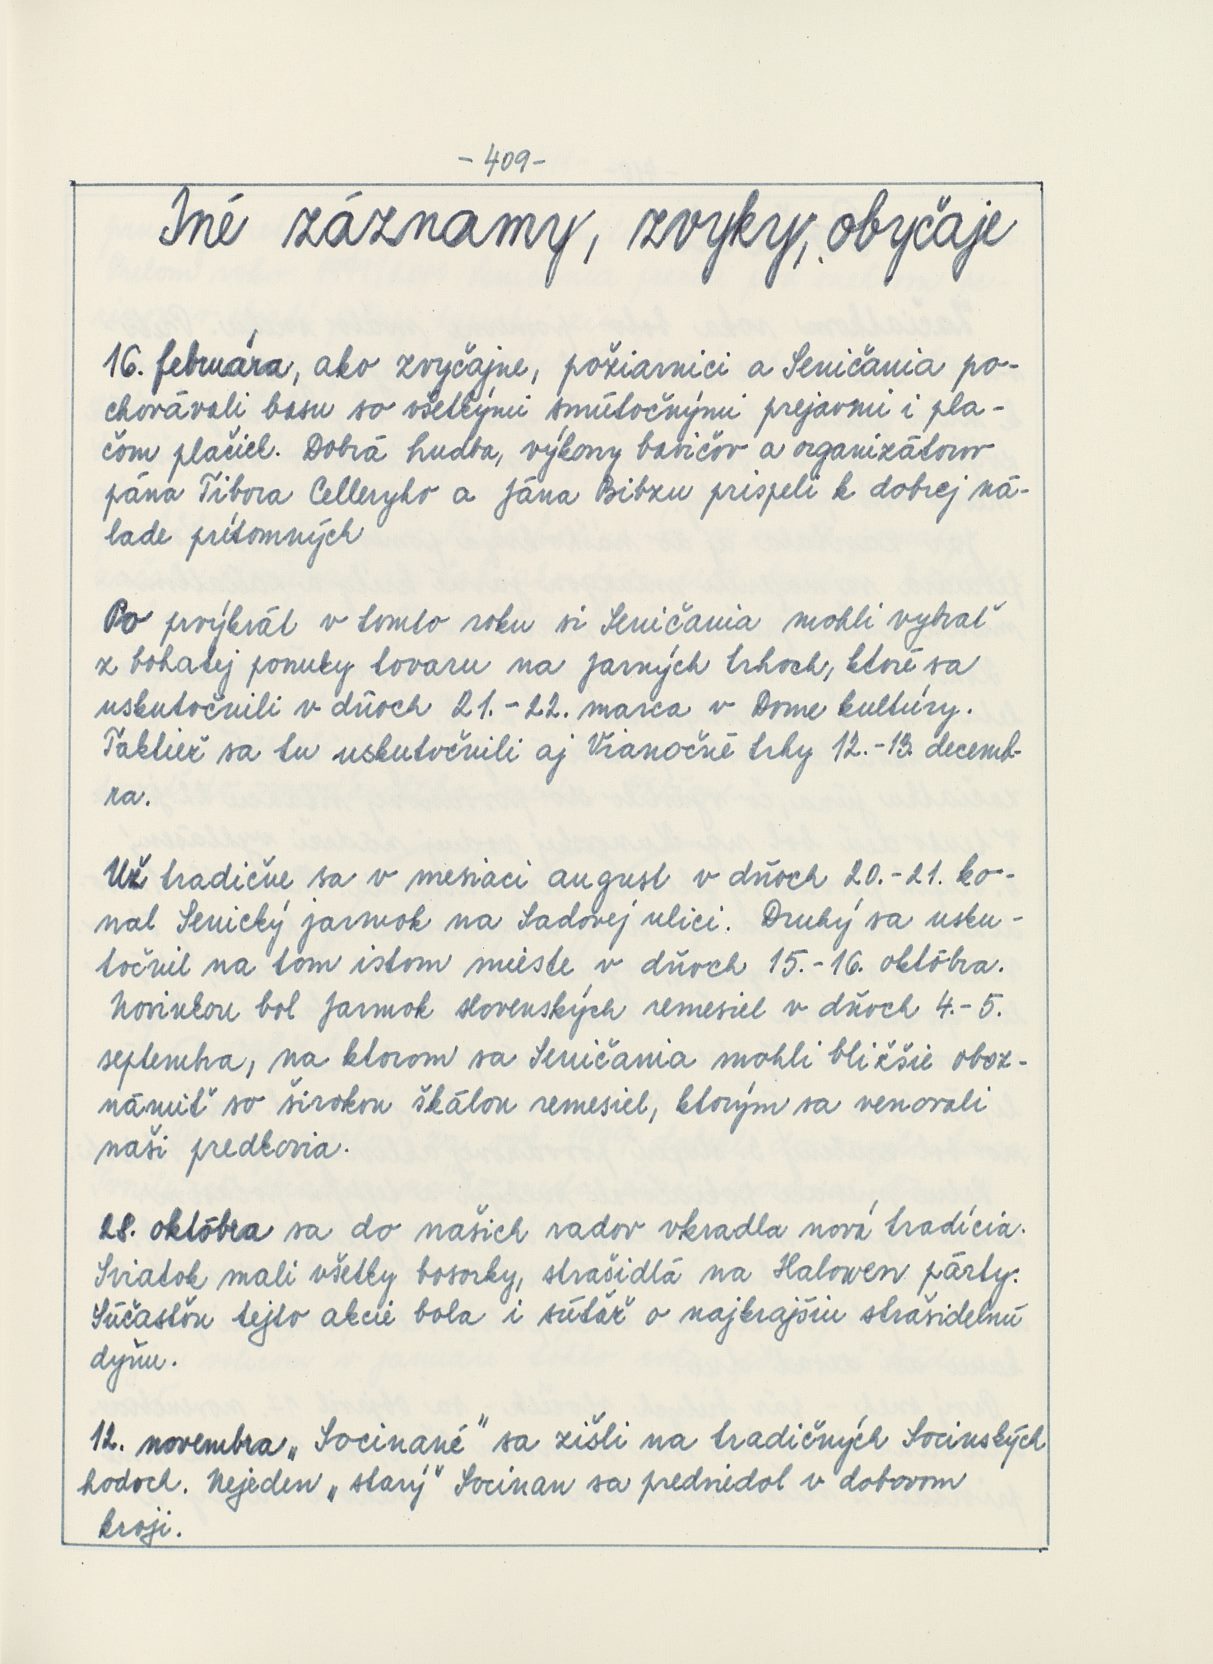 - 409 -
Iné záznamy, zvyky, obyčaje
16. februára, ako zvyčajne, požiarnici a Seničania po-
chovávali basu so všetkými smútočnými prejavmi i pla-
čom plačiek. Dobrá hudba, výkony basičov a organizátorov
pána Tibora Celleryho a Jána Bibzu prispeli k dobrej ná-
lade prítomných
Po prvýkrát v tomto roku si Seničania mohli vybrať
z bohatej ponuky tovaru na Jarných trhoch, ktoré sa
uskutočnili v dňoch 21. - 22. marca v Dome kultúry.
Taktiež sa tu uskutočnili aj Vianočné trhy 12. - 13. decemb-
ra.
Už tradične sa v mesiaci august v dňoch 20. - 21. ko-
nal Senický jarmok na Sadovej ulici. Druhý sa usku-
točnil na tom istom mieste v dňoch 15. - 16. októbra.
Novinkou bol Jarmok slovenských remesiel v dňoch 4. - 5.
septembra, na ktorom sa Seničania mohli bližšie oboz-
námiť so širokou škálou remesiel, ktorým sa venovali
naši predkovia.
28. októbra sa do našich radov vkradla nová tradícia.
Sviatok mali všetky bosorky, strašidlá na Halowen párty.
Súčasťou tejto akcie bola i súťaž o najkrajšiu strašidelnú
dyňu.
12. novembra „Socinané" sa zišli na tradičných Socinských
hodoch. Nejeden „starý" Socinan sa predviedol v dobovom
kroji.